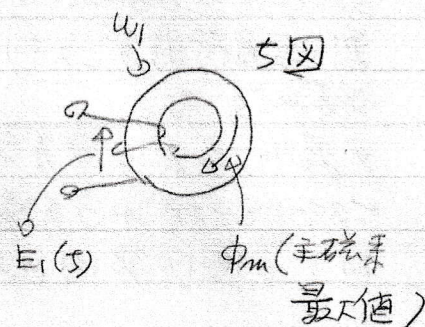 W1
5図
E1(5)
Φm(主磁束
最大値)